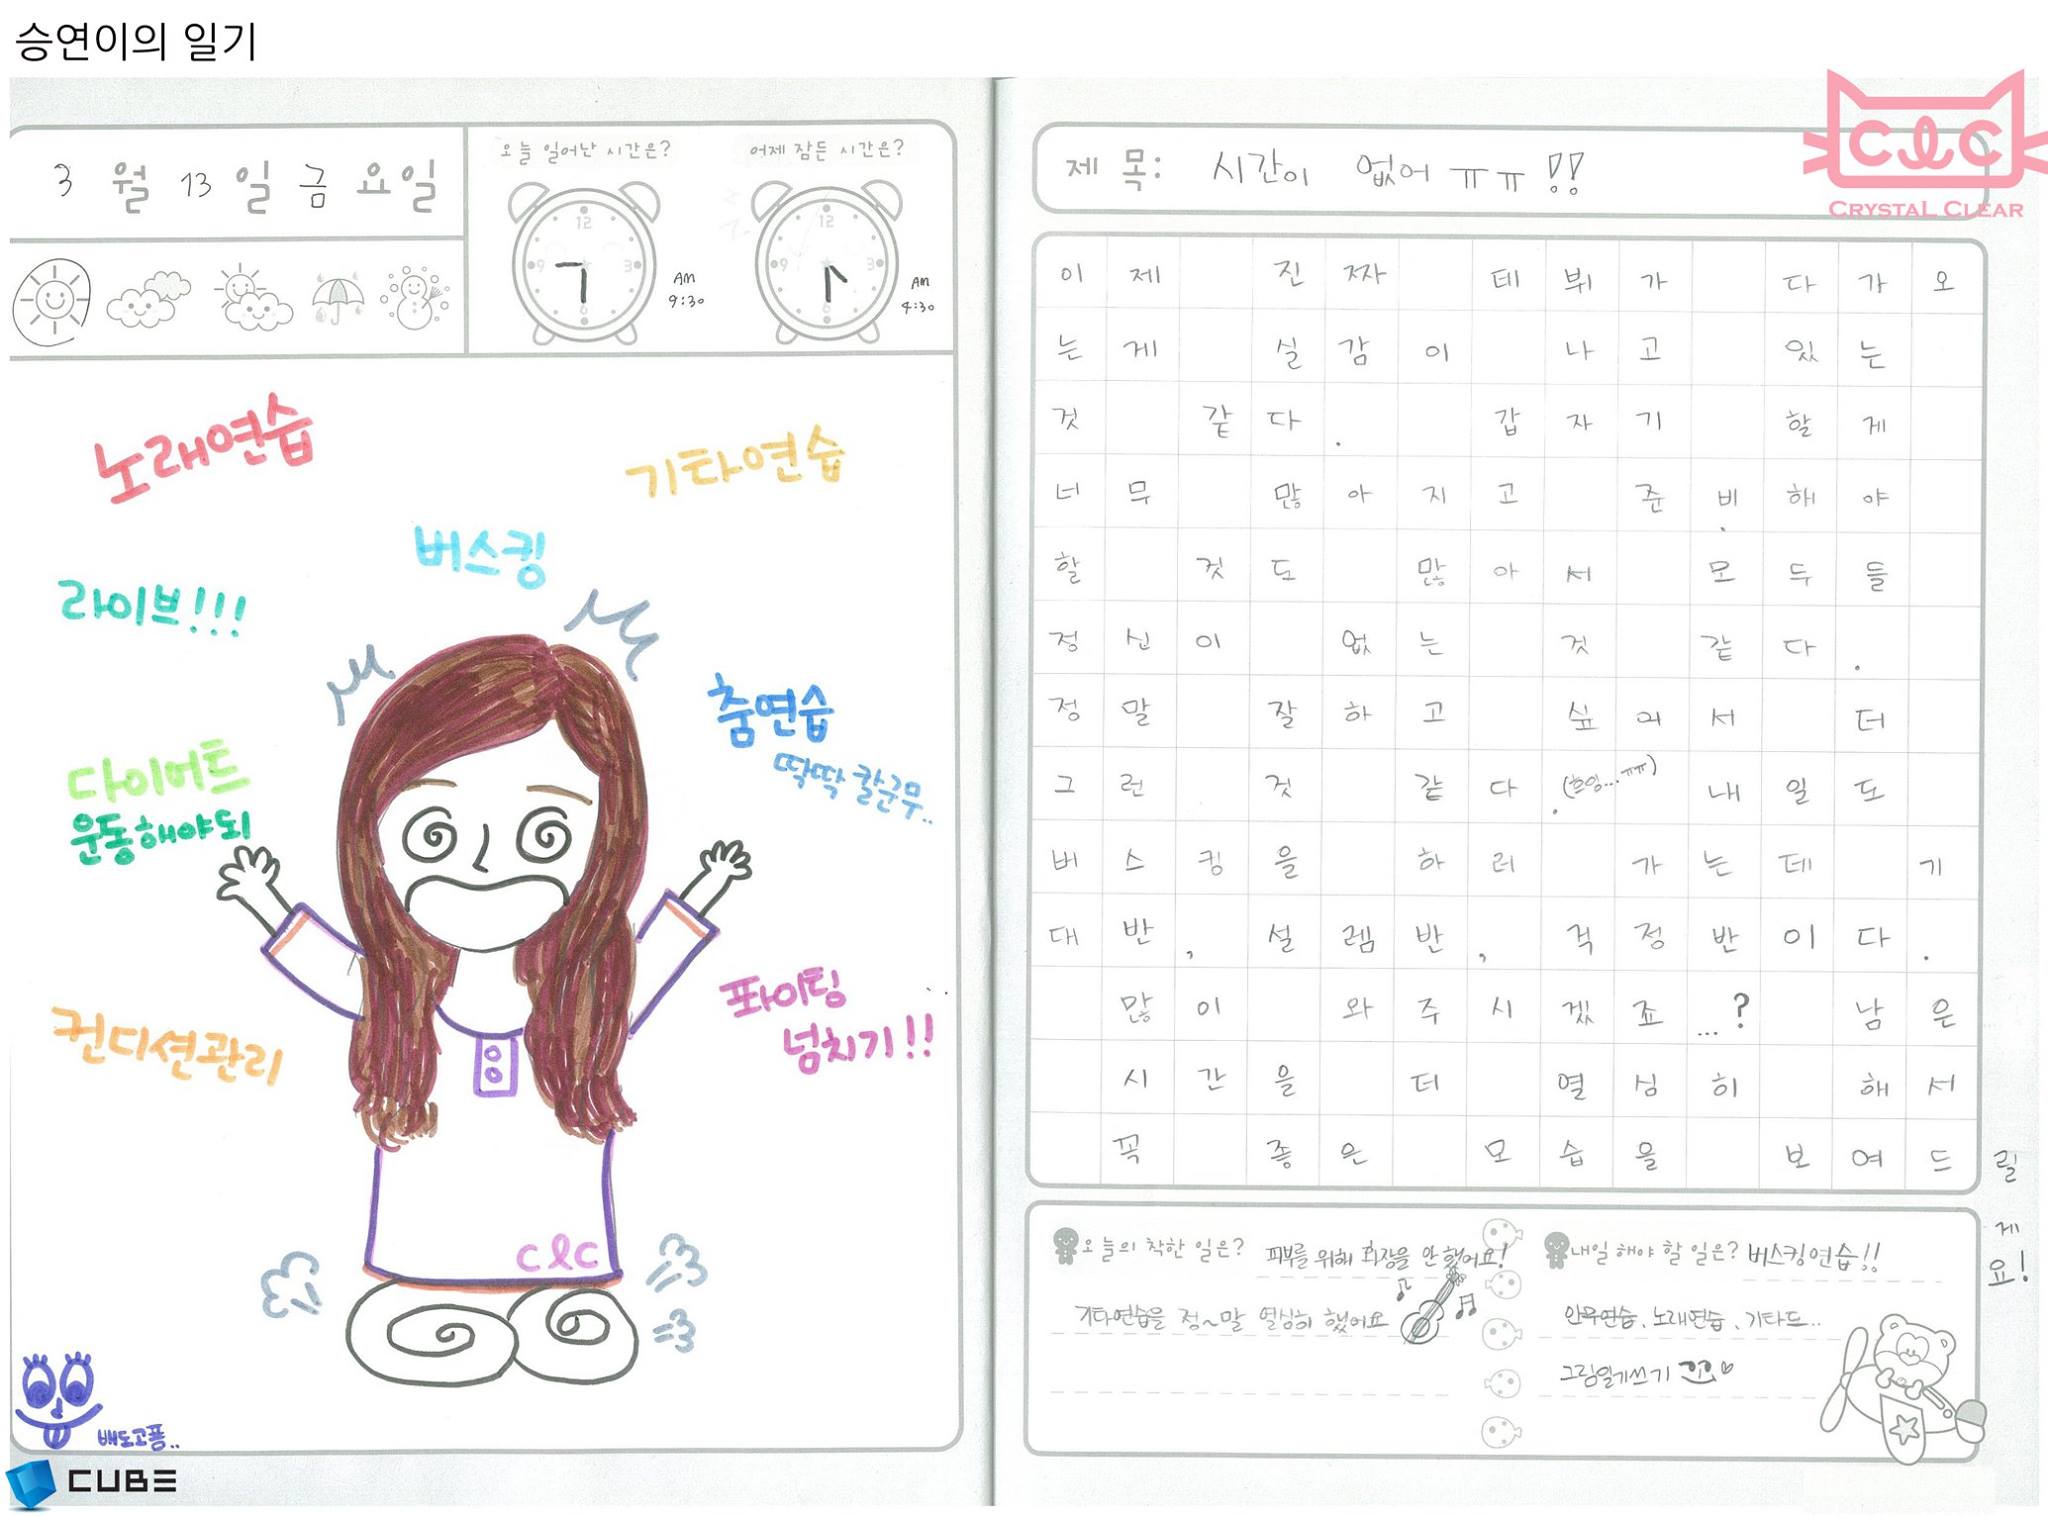 승연이의 일기
3 월 13 일 금 요일
오늘 일어난 시간은?
어제 잠든 시간은?
12
9 3
6
AM
9:30
12
9 3
6
AM
4:30
노래연습
기타연습
버스킹
라이브!!!
춤연습
딱딱 칼군무..
다이어트
운동해야되
파이팅
넘치기!!
컨디션관리
clc
배도고픔..
CUBE
제 목: 시간이 없어 ㅠㅠ !!
CLC
CRYSTAL CLEAR
이제 진짜 테뷔가 다가오
는게 실감이 나고 있는
것 같다. 갑자기 할게
너무 많아지고 준비해야
할 것도 많아서 모두들
정신이 없는 것 같다.
정말 잘하고 싶어서 더
그런 것 같다. (흐잉...ㅠㅠ) 내일도
버스킹을 하러 가는데 기
대반, 설렘반, 걱정반이다.
많이 와주시겠죠...? 남은
시간을 더 열심히 해서
꼭 좋은 모습을 보여드
릴
게
요!
오늘의 착한 일은? 피부를 위해 화장을 안 했어요!
기타연습을 정~말 열심히 했어요
내일 해야 할 일은? 버스킹연습!!
안무연습, 노래연습, 기타드..
그림일기쓰기